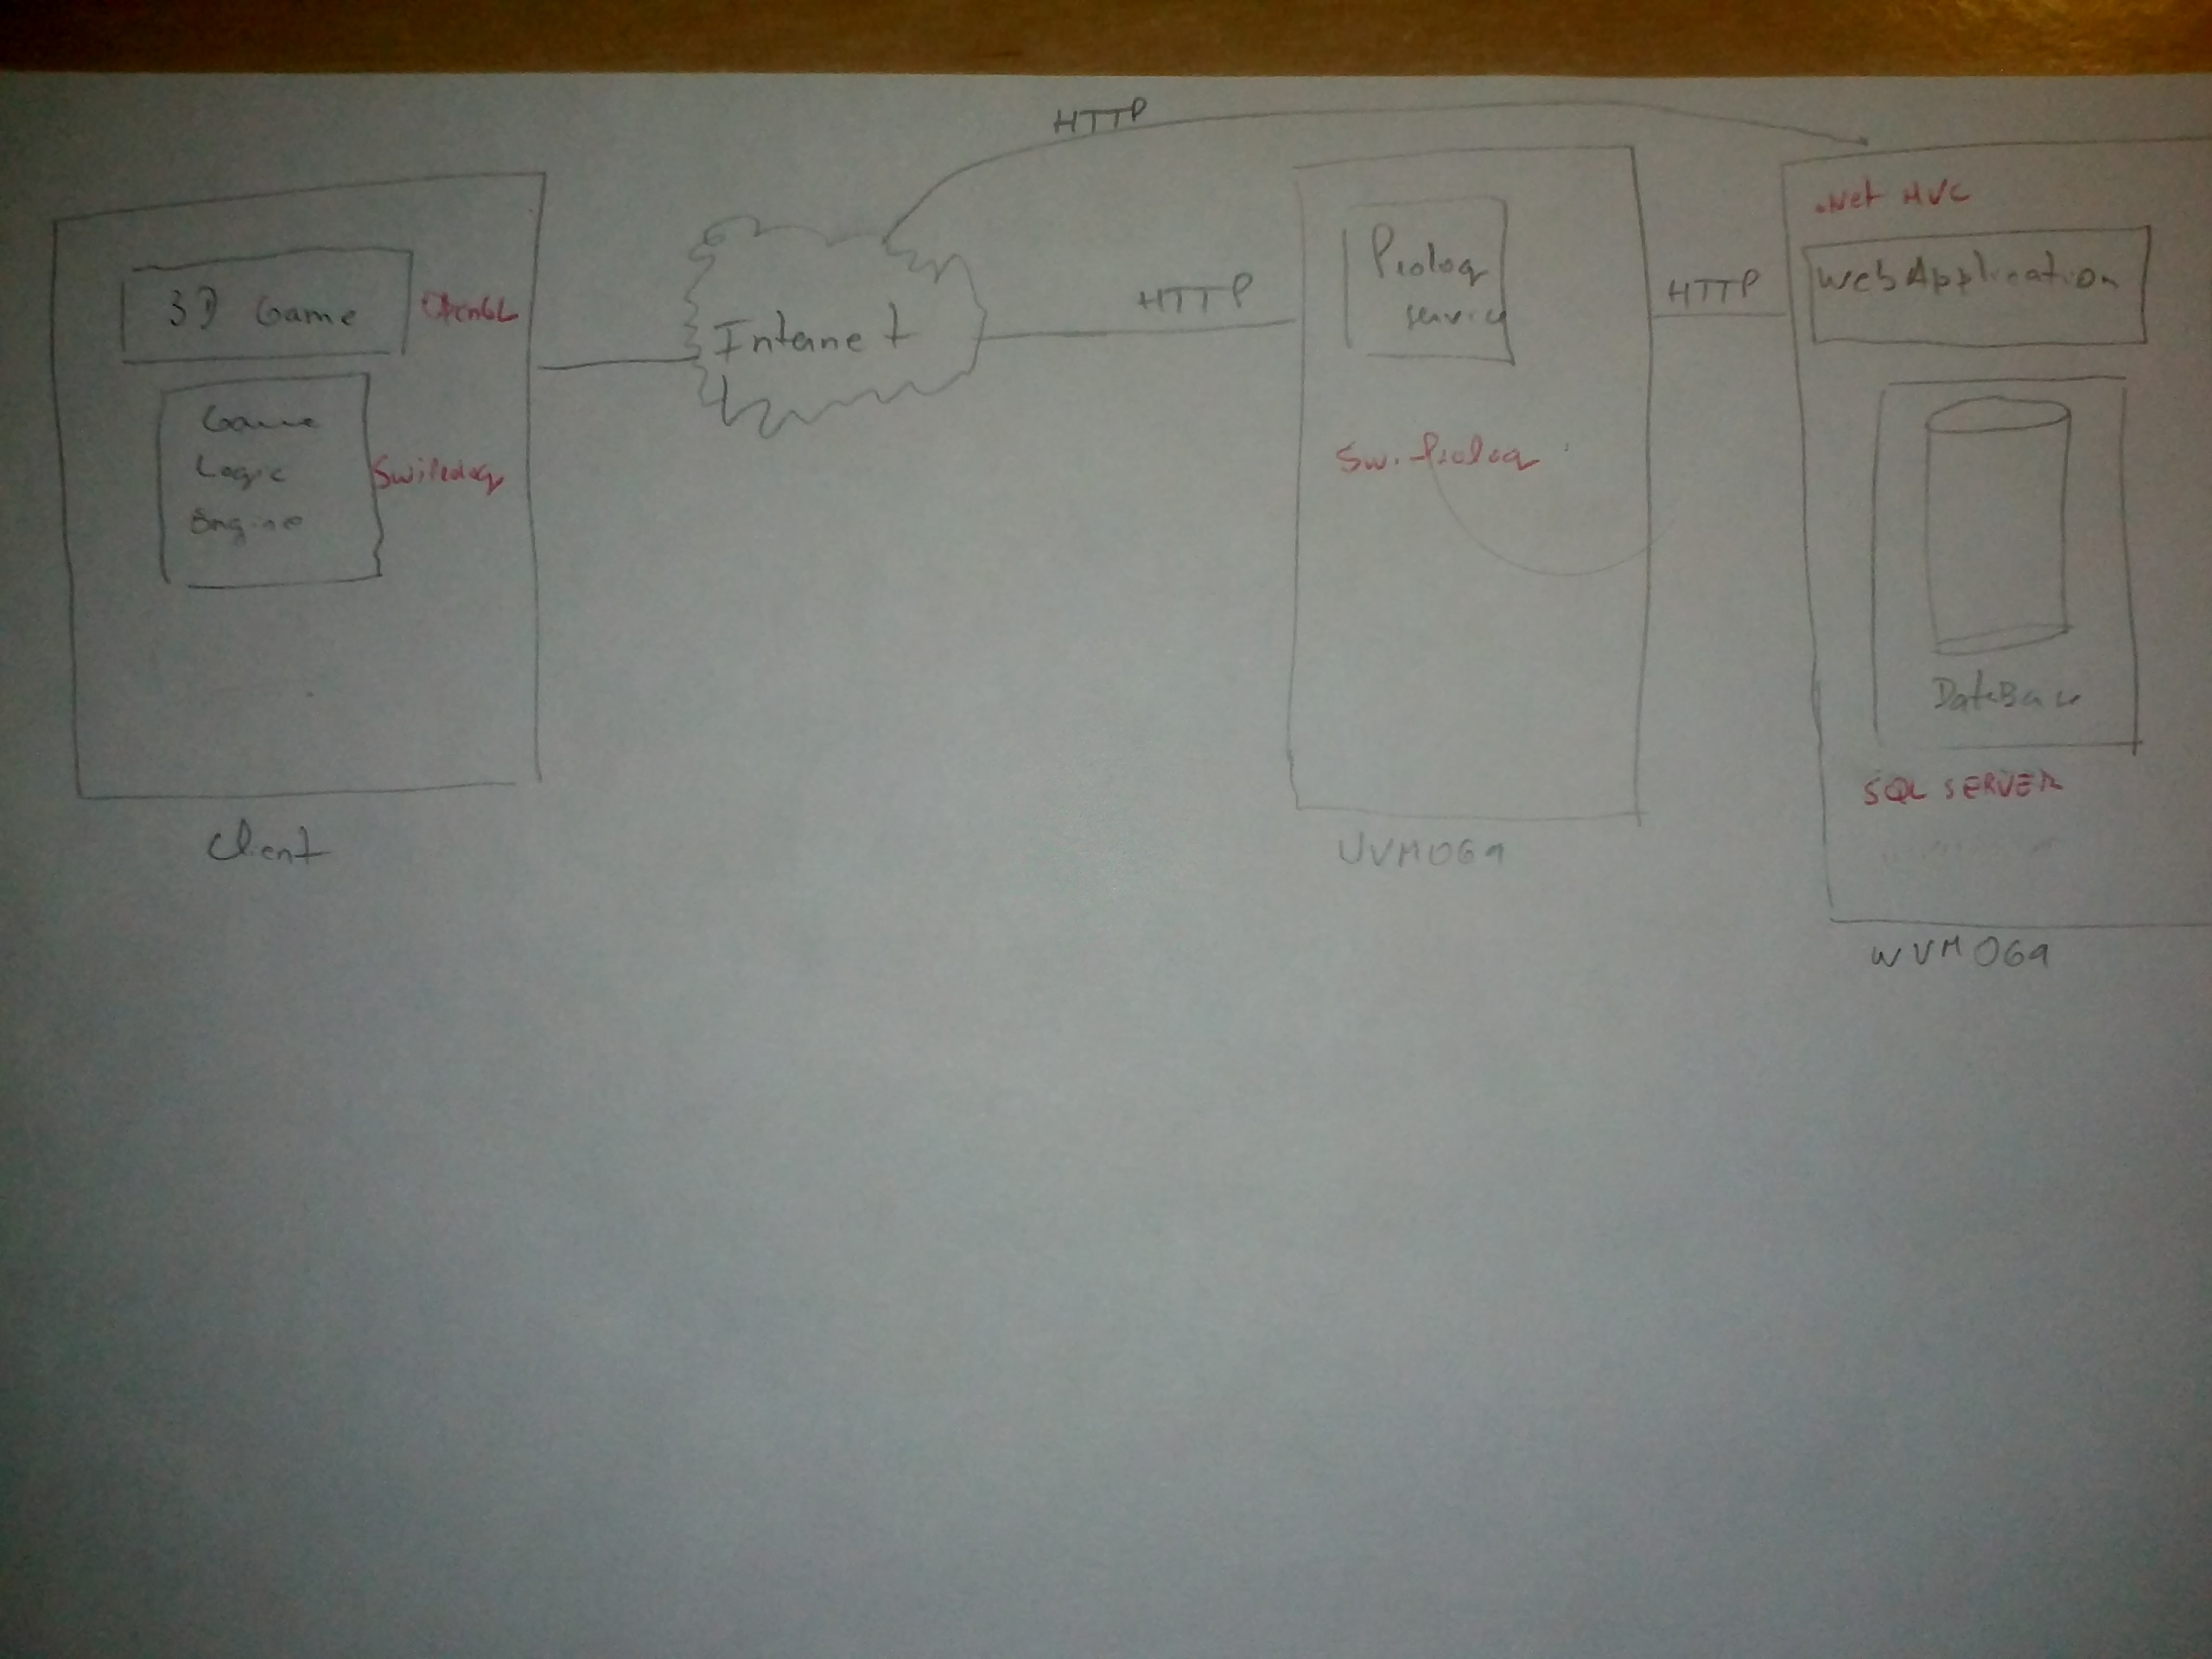 HTTP
3D Game
OpenGL
Game
Logic
Engine
Client
Internet
HTTP
Prolog
service
Swi Prolog
UVM069
HTTP
.Net MVC
WebApplication
DataBase
SQL SERVER
WVM069